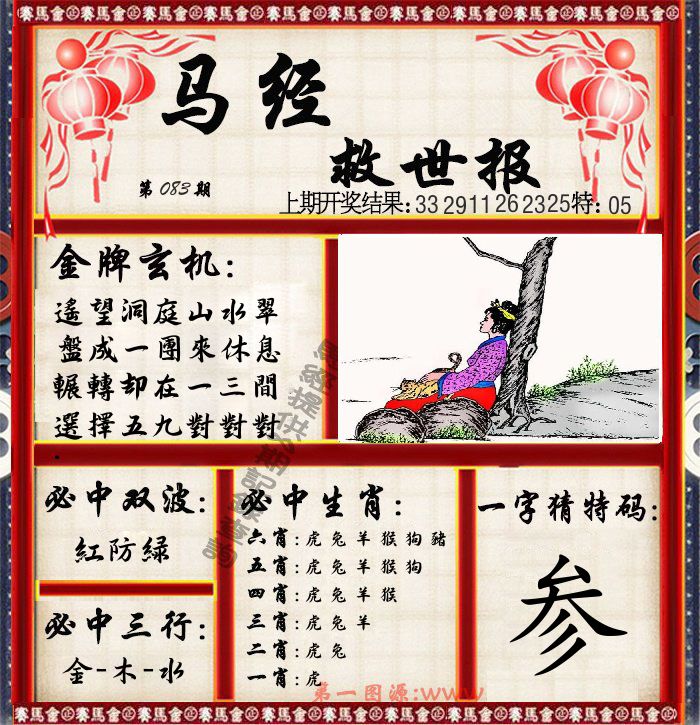 賽馬會正 賽馬會正 賽馬會正 賽馬會正 賽馬會正
马经
救世报
第083期
上期开奖结果:33 2911 26 2325特:05
金牌玄机:
遙望洞庭山水翠
盤成一團來休息
輾轉却在一三間
選擇五九對對對
必中双波:
紅防綠
必中三行:
金-木-水
必中生肖:
六肖:虎兔羊猴狗豬
五肖:虎兔羊猴狗
四肖:虎兔羊猴
三肖:虎兔羊
二肖:虎兔
一肖:虎
一字猜特码:
参
第一图源:www